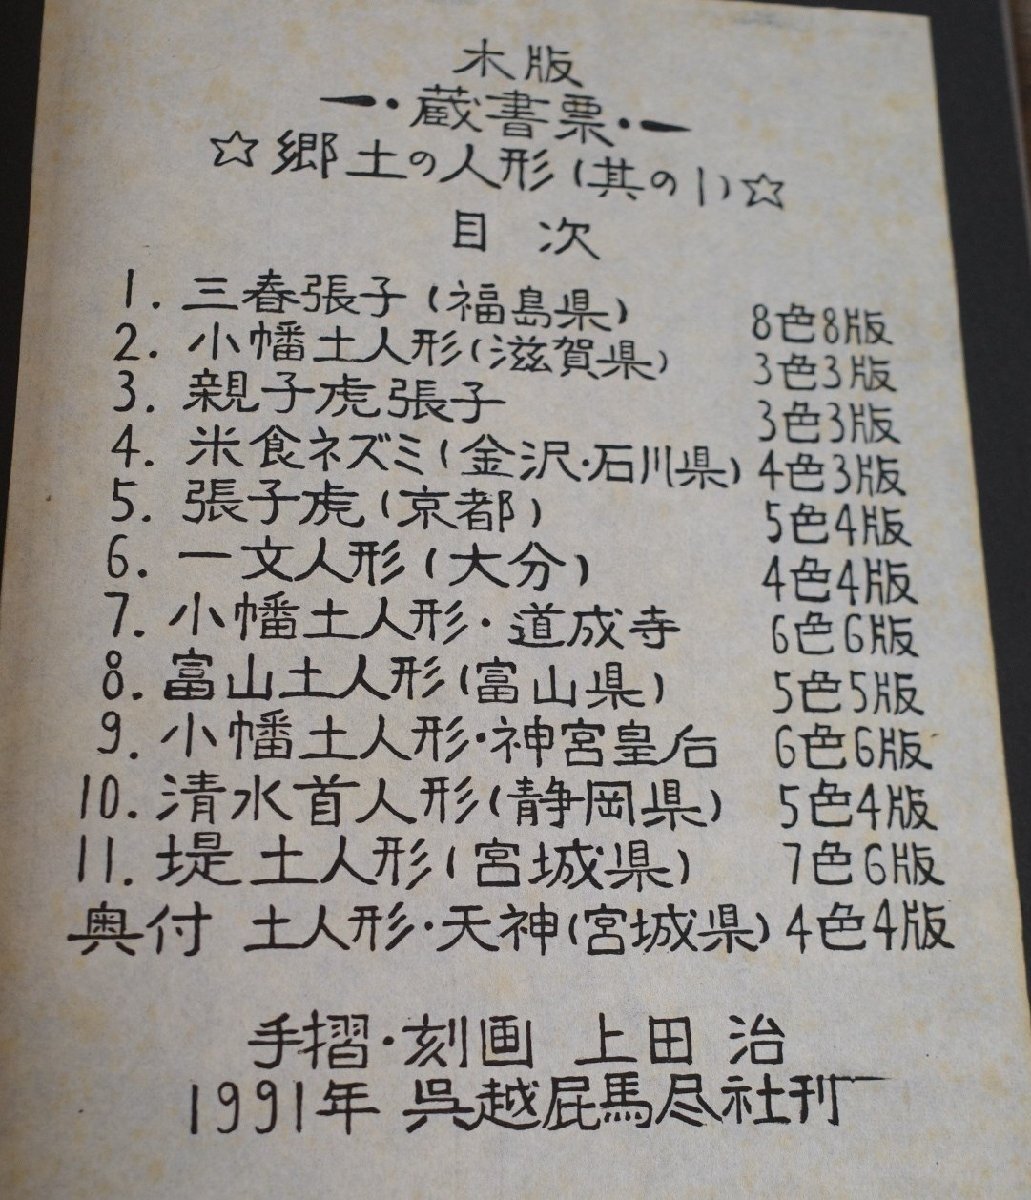 木版
蔵書票
☆郷土の人形(其の1)☆
目次
1. 三春張子(福島県) 8色8版
2. 小幡土人形(滋賀県) 3色3版
3. 親子虎張子 3色3版
4. 米食ネズミ(金沢・石川県) 4色3版
5. 張子虎(京都) 5色4版
6. 一文人形(大分) 4色4版
7. 小幡土人形・道成寺 6色6版
8. 富山土人形(富山県) 5色5版
9. 小幡土人形・神宮皇后 6色6版
10. 清水首人形(静岡県) 5色4版
11. 堤土人形(宮城県) 7色6版
奥付 土人形・天神(宮城県) 4色4版
手摺・刻画 上田 治
1991年 呉越屁馬尽社刊